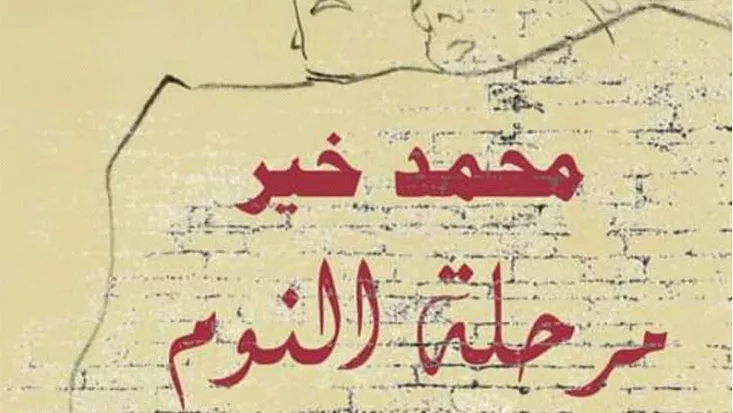 محمد خير
مرحلة النوم